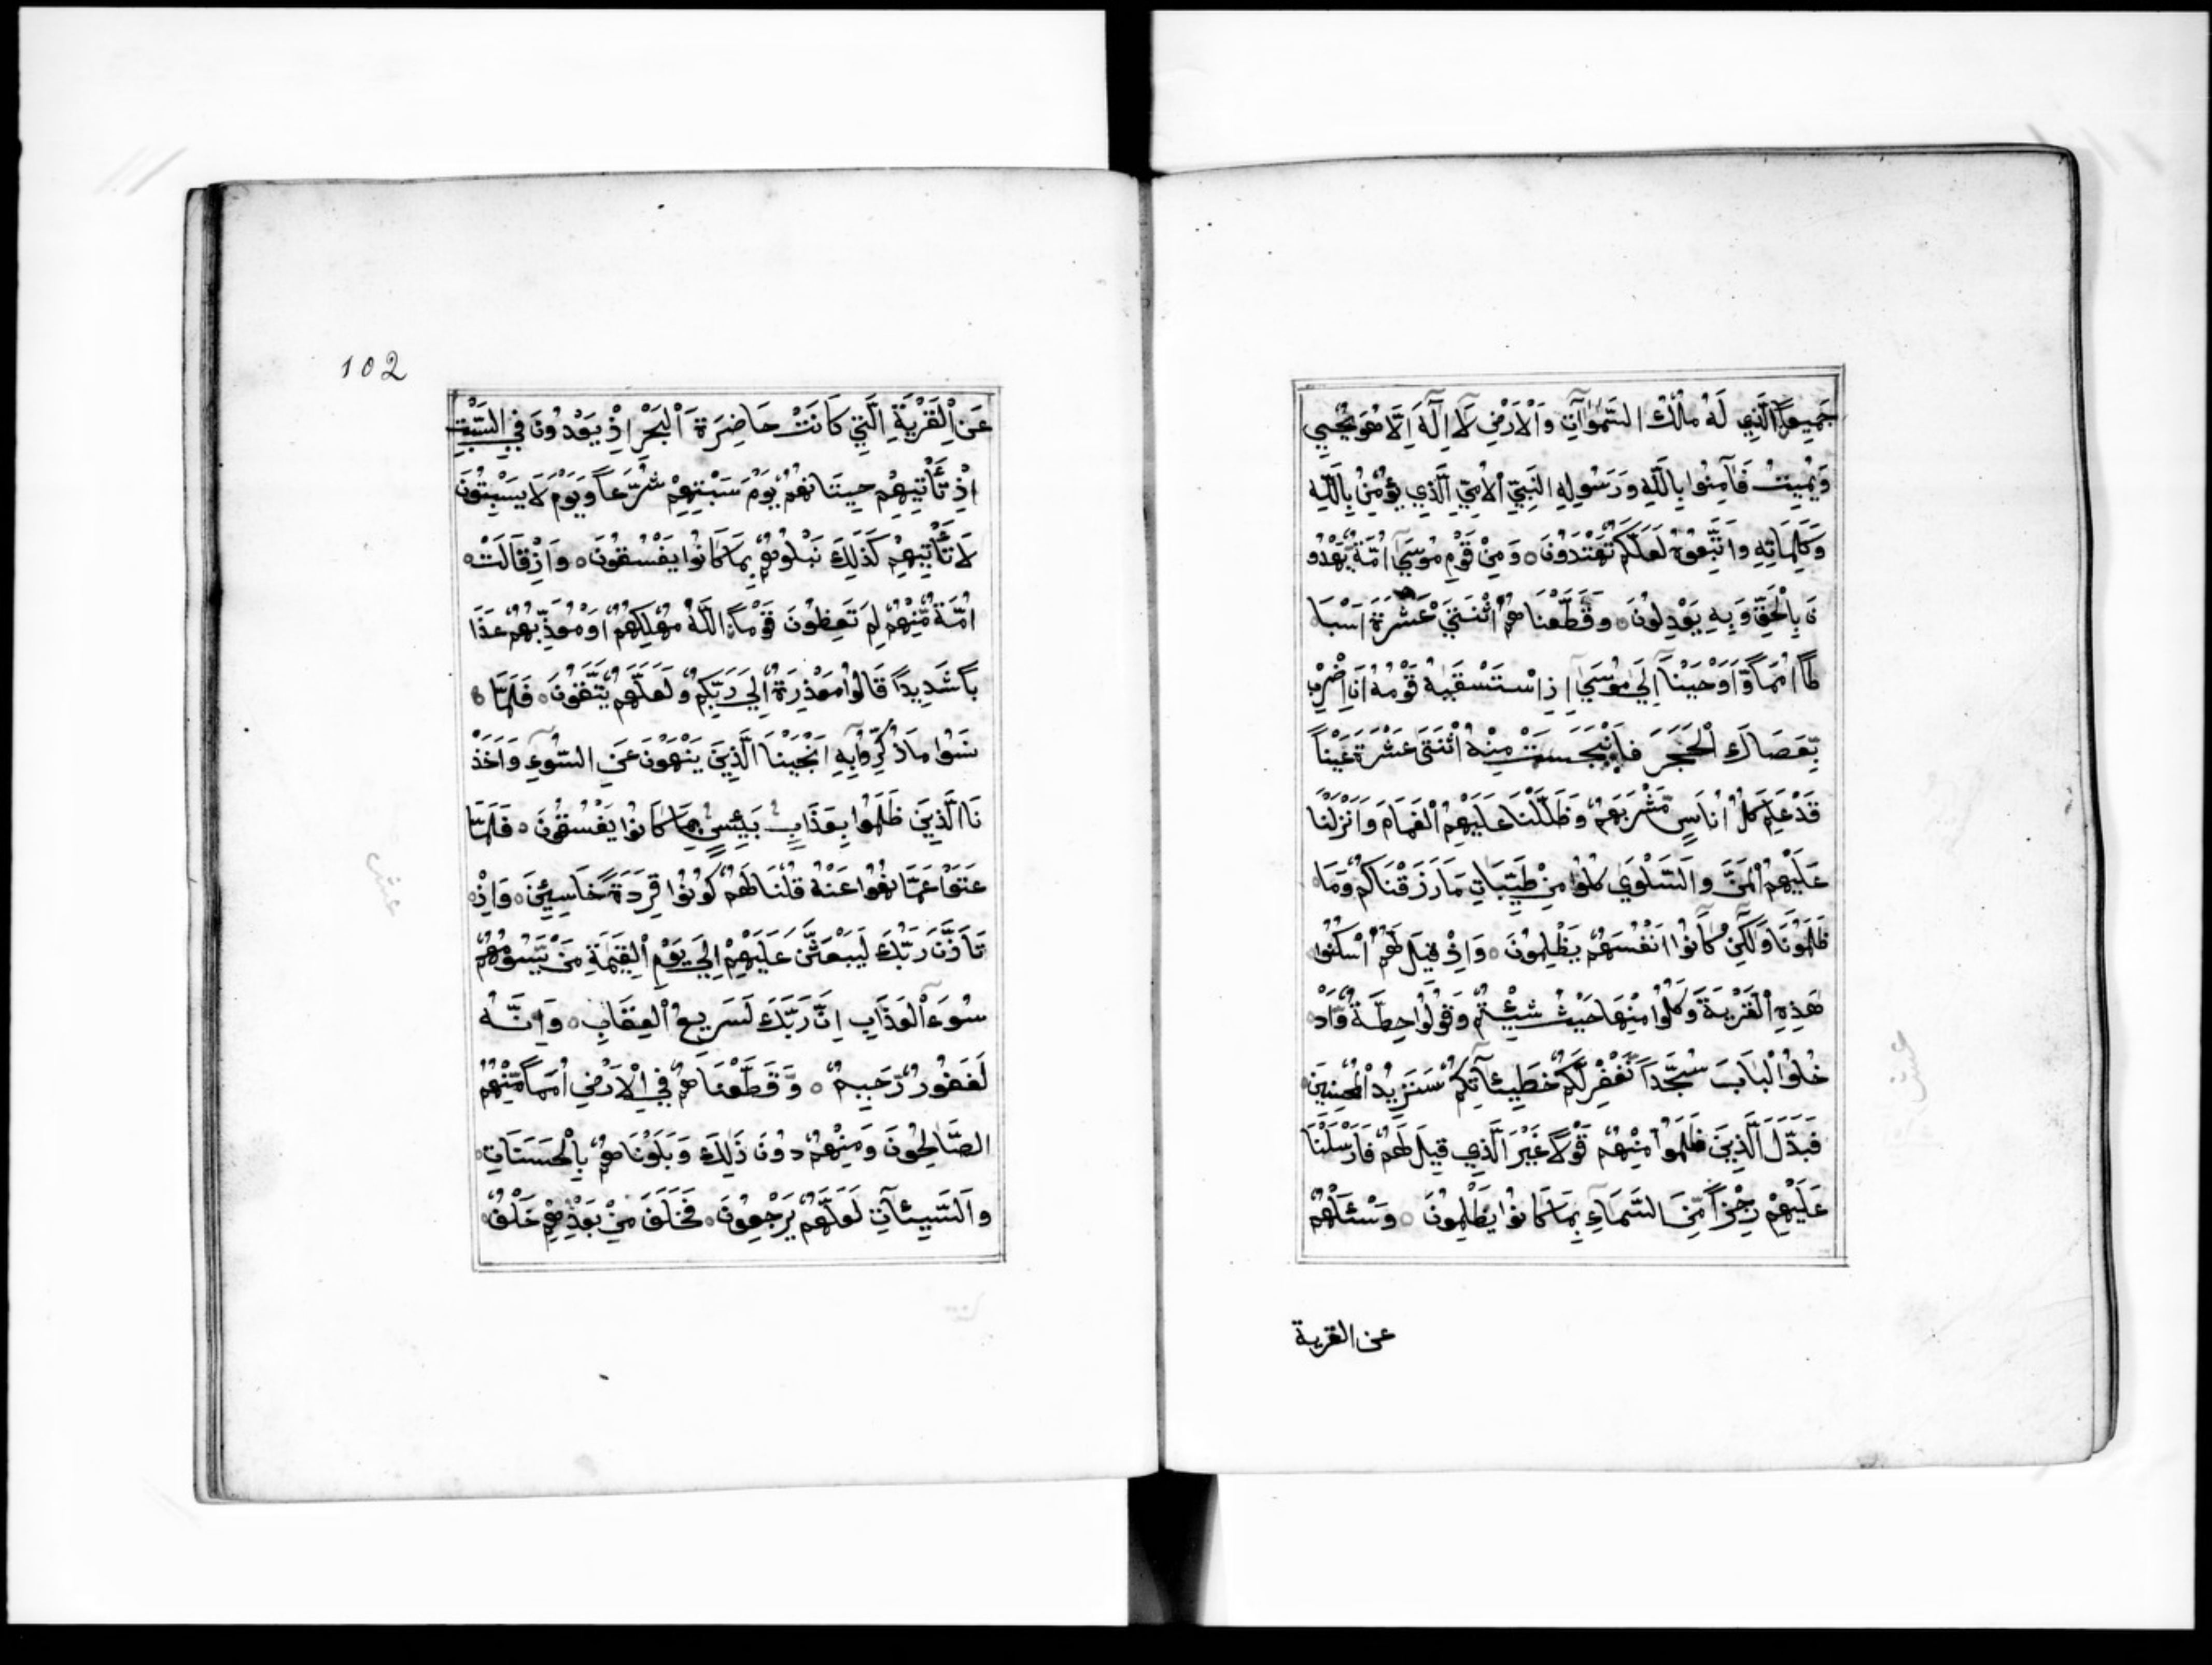 جَمِيعاً الَّذِي لَهُ مُلْكُ السَّمٰوَاتِ وَالْاَرْضِ لَا اِلٰهَ اِلَّا هُوَ يُحْيِي
وَيُمِيتُ فَآمِنُوا بِاللَّهِ وَرَسُولِهِ النَّبِيِّ الْاُمِّيِّ الَّذِي يُؤْمِنُ بِاللَّهِ
وَكَلِمَاتِهِ وَاتَّبِعُوهُ لَعَلَّكُمْ تَهْتَدُونَ ٥ وَمِنْ قَوْمِ مُوسَي اُمَّةٌ يَّهْدُو
نَ بِالْحَقِّ وَبِهِ يَعْدِلُونَ ٥ وَقَطَّعْنَا هُمُ اثْنَتَيْ عَشْرَةَ اَسْبَا
طًا اُمَمًا وَّاَوْحَيْنَا اِلَي مُوسَي اِذِ اسْتَسْقٰيهُ قَوْمُهُ اَنِ اضْرِبْ
بِّعَصَاكَ الْحَجَرَ فَانْبَجَسَتْ مِنْهُ اثْنَتَى عَشْرَةَ عَيْناً
قَدْ عَلِمَ كُلُّ اُنَاسٍ مَّشْرَبَهُمْ وَظَلَّلْنَا عَلَيْهِمُ الْغَمَامَ وَاَنْزَلْنَا
عَلَيْهِمُ الْمَنَّ وَالسَّلْوَي كُلُوا مِنْ طَيِّبَاتِ مَا رَزَقْنَاكُمْ وَمَا
ظَلَمُونَا وَلٰكِنْ كَانُوا اَنْفُسَهُمْ يَظْلِمُونَ ٥ وَاِذْ قِيلَ لَهُمُ اسْكُنُوا
هٰذِهِ الْقَرْيَةَ وَكُلُوا مِنْهَا حَيْثُ شِئْتُمْ وَقُولُوا حِطَّةٌ وَّادْ
خُلُوا الْبَابَ سُجَّداً نَّغْفِرْ لَكُمْ خَطِيئَآتِكُمْ سَنَزِيدُ الْمُحْسِنِينَ
فَبَدَّلَ الَّذِينَ ظَلَمُوا مِنْهُمْ قَوْلاً غَيْرَ الَّذِي قِيلَ لَهُمْ فَاَرْسَلْنَا
عَلَيْهِمْ رِجْزاً مِّنَ السَّمَاءِ بِمَا كَانُوا يَظْلِمُونَ ٥ وَسْئَلْهُمْ
عن القرية
102
عَنِ الْقَرْيَةِ الَّتِي كَانَتْ حَاضِرَةَ الْبَحْرِ اِذْ يَعْدُونَ فِي السَّبْتِ
اِذْ تَأْتِيهِمْ حِيتَانُهُمْ يَوْمَ سَبْتِهِمْ شُرَّعاً وَّيَوْمَ لَا يَسْبِتُونَ
لَا تَأْتِيهِمْ كَذَلِكَ نَبْلُوهُمْ بِمَا كَانُوا يَفْسُقُونَ ٥ وَاِذْ قَالَتْ
اُمَّةٌ مِّنْهُمْ لِمَ تَعِظُونَ قَوْماً اللَّهُ مُهْلِكُهُمْ اَوْ مُعَذِّبُهُمْ عَذَا
باً شَدِيداً قَالُوا مَعْذِرَةً اِلَي رَبِّكُمْ وَلَعَلَّهُمْ يَتَّقُونَ ٥ فَلَمَّا
نَسُوا مَا ذُكِّرُوا بِهِ اَنْجَيْنَا الَّذِينَ يَنْهَوْنَ عَنِ السُّوءِ وَاَخَذْ
نَا الَّذِينَ ظَلَمُوا بِعَذَابٍ بَئِيسٍ بِمَا كَانُوا يَفْسُقُونَ ٥ فَلَمَّا
عَتَوْا عَمَّا نُهُوا عَنْهُ قُلْنَا لَهُمْ كُونُوا قِرَدَةً خَاسِئِينَ ٥ وَاِذْ
تَاَذَّنَ رَبُّكَ لَيَبْعَثَنَّ عَلَيْهِمْ اِلَي يَوْمِ الْقِيٰمَةِ مَنْ يَّسُومُهُمْ
سُوءَ الْعَذَابِ اِنَّ رَبَّكَ لَسَرِيعُ الْعِقَابِ ٥ وَاِنَّهُ
لَغَفُورٌ رَّحِيمٌ ٥ وَقَطَّعْنَا هُمْ فِي الْاَرْضِ اُمَماً مِّنْهُمُ
الصَّالِحُونَ وَمِنْهُمْ دُونَ ذٰلِكَ وَبَلَوْنَا هُمْ بِالْحَسَنَاتِ
وَالسَّيِّئَاتِ لَعَلَّهُمْ يَرْجِعُونَ ٥ فَخَلَفَ مِنْ بَعْدِهِمْ خَلْفٌ